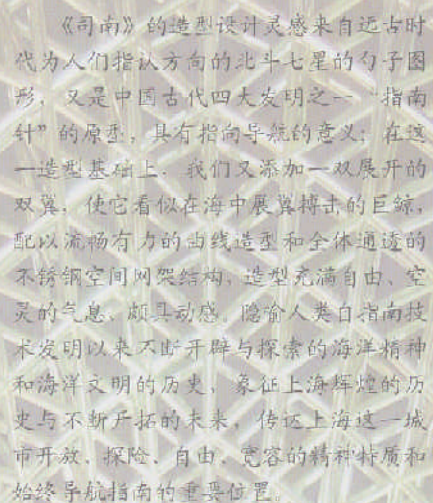 《司南》的造型设计灵感来自远古时
代为人们指认方向的北斗七星的勺子图
形，又是中国古代四大发明之一“指南
针”的原型，具有指向导航的意义；在这
一造型基础上，我们又添加一双展开的
双翼，使它看似在海中展翼搏击的巨鲸，
配以流畅有力的曲线造型和全体通透的
不锈钢空间网架结构，造型充满自由、空
灵的气息，颇具动感。隐喻人类自指南技
术发明以来不断开辟与探索的海洋精神
和海洋文明的历史，象征上海辉煌的历
史与不断开拓的未来，传达上海这一城
市开放、探险、自由、宽容的精神特质和
始终导航指南的重要位置。